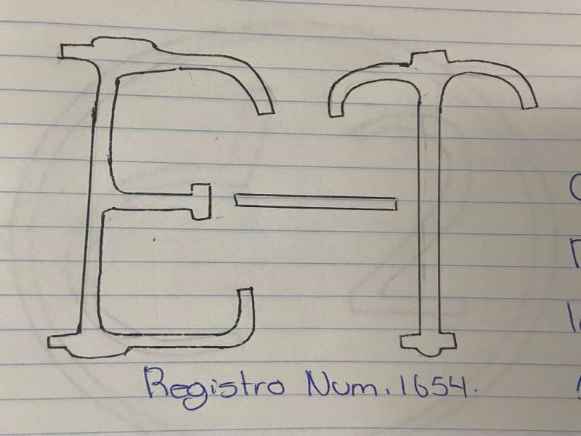 E-T
Registro Num. 1654.